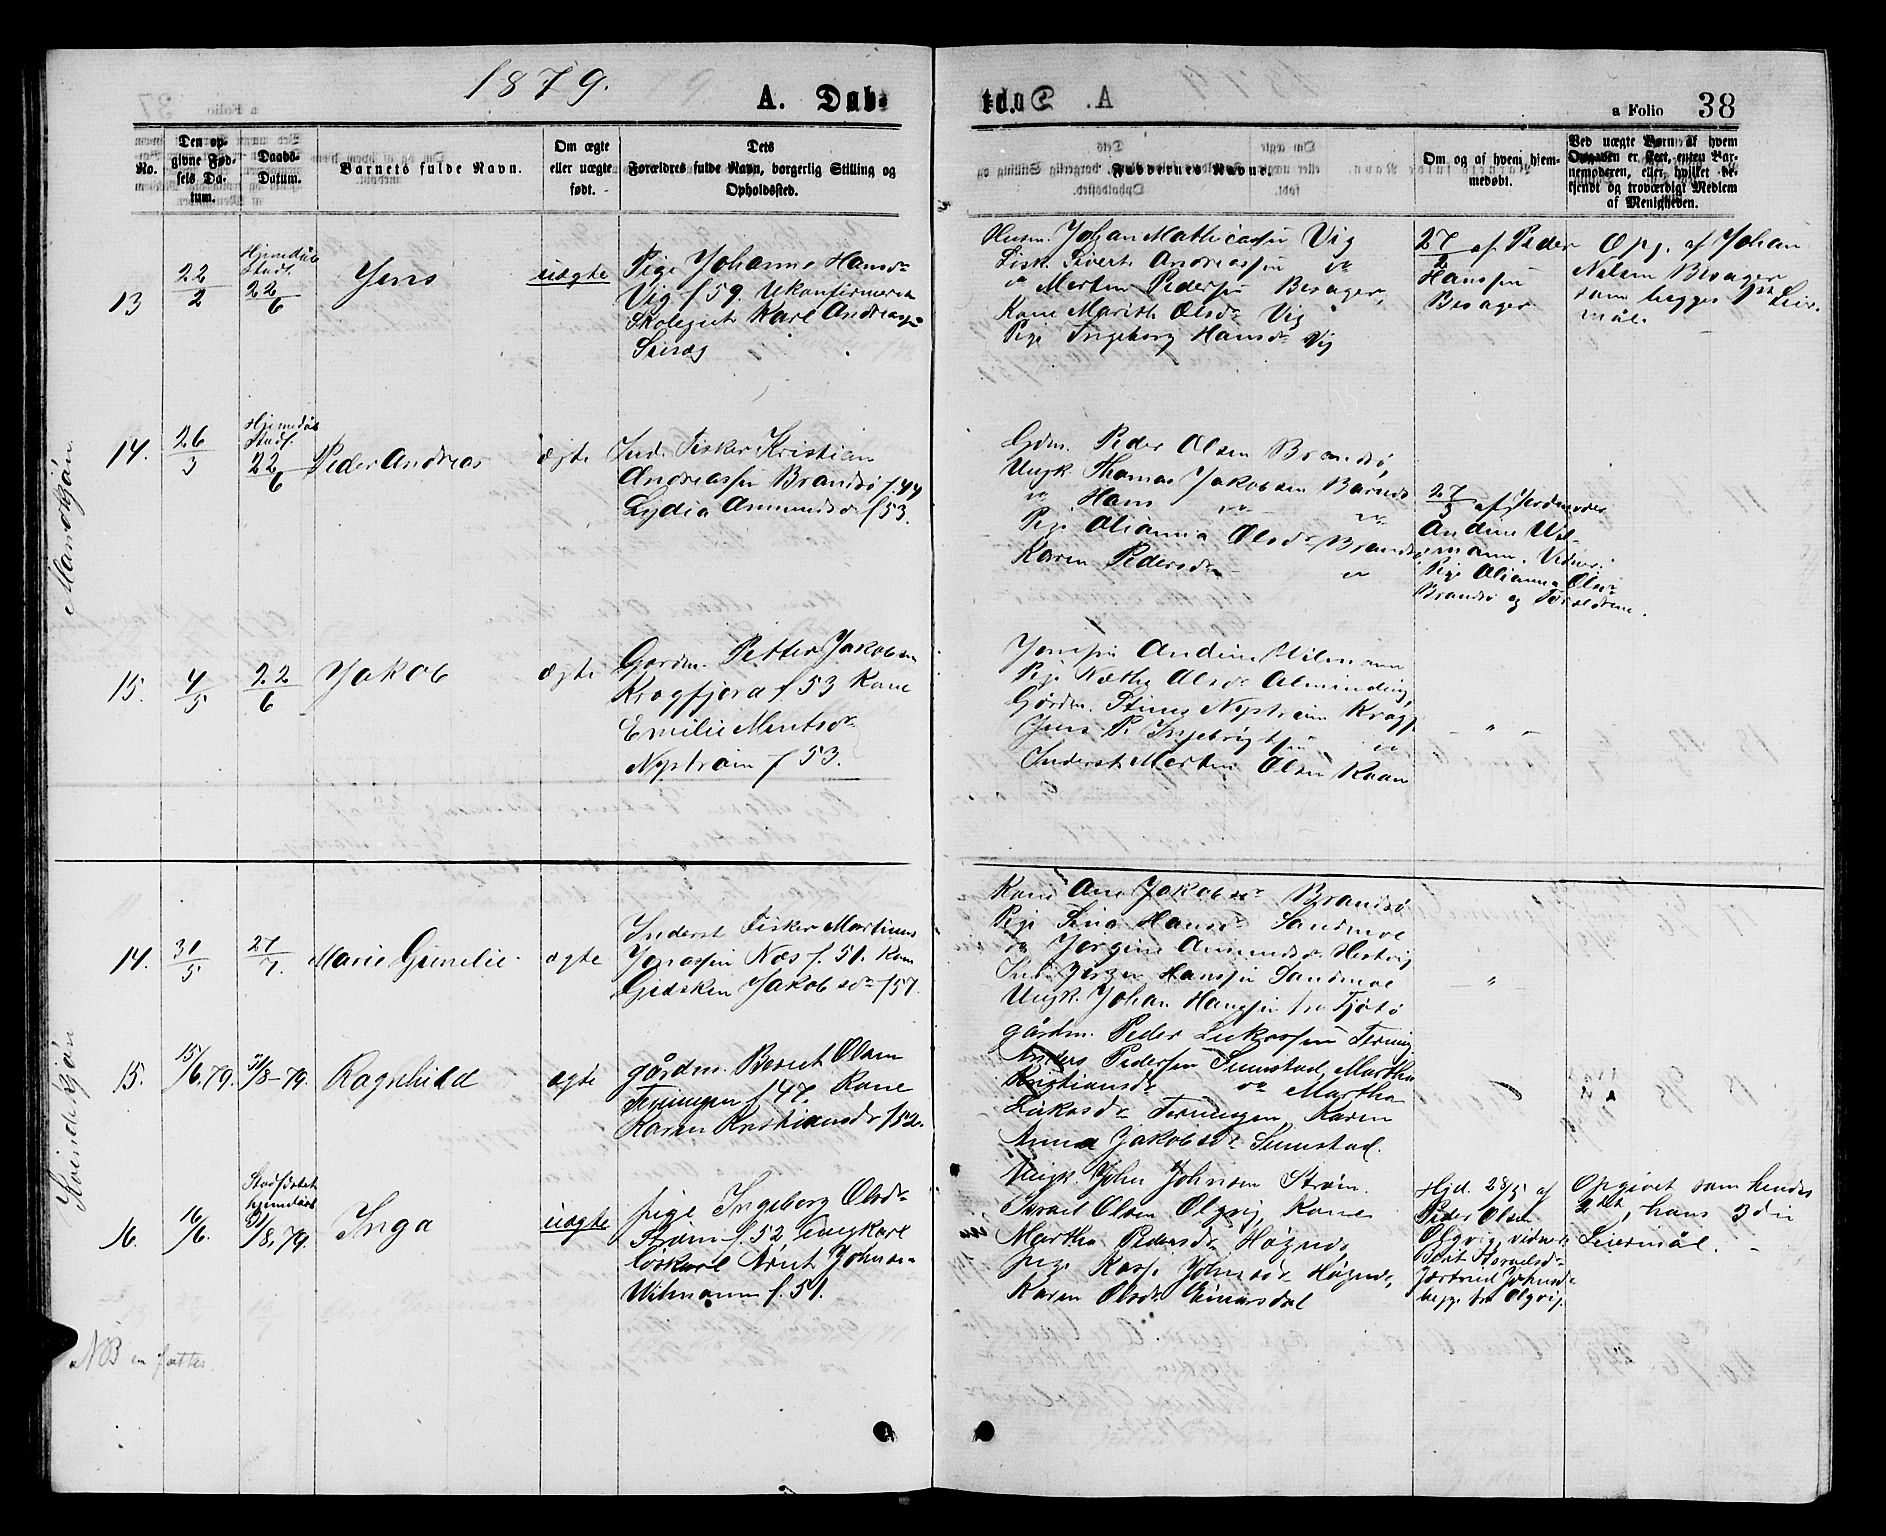 1879.
A. Dab-
a Folio 38
No.
Den op-
givne Fød-
sels Da-
tum.
Daabs-
Datum.
Barnets fulde Navn.
Om ægte
eller uægte
født.
Dets
Forældres fulde Navn, borgerlig Stilling og
Opholdssted.
Faddernes Navne.
Om og af hvem hjem-
medøbt.
Ved uægte Børn af hvem
Opgaven er skeet, enten Bar-
nemoderen, eller hvilket be-
kjendt og troværdigt Medlem
af Menigheden.
Mandkjøn
13
22/2
Hjemdøb
Stadf.
22/6
Jens
uægte
Pige Johanna Hansdr
Vig f 59. Ukonfirmeret
Skolegut Karl Andreass
Husm. Johan Mathiassen Vig
Sivert Andreassen
Morten Pedersen Besager,
Kone Marith Olsdr Vig
Pige Ingeborg Hansdr Vig
27/2 af Peder
Hanssen
Besager
Opg. af Johan
Nilsen Besager
som begges 1ste Leier-
mål.
14.
26/3
Hjemdøb
Stadf.
22/6
Peder Andreas
ægte
Ind. Fisker Kristian
Andreassen Brandsø f 44
Lydia Amundsdr f 53.
Gdm. Peder Olsen Brandsø,
Ungk. Thomas Jakobsen
Hans
Pige Olianna Olsdr Brandsø
Karen Pedersdr
27/3 af Jordmoder
Andine Wil-
mann. Vidner:
Pige Olianna Olsdr
Brandsø og Forældrene.
15.
4/5
22/6
Jakob
ægte
Gardm. Petter Jakobsen
Kragfjora f 53 Kone
Emilie Mentsdr
Nystrøm f 53.
Andine Wilmann
Pige Kathr. Olsdr Alminding,
Gårdm. Stines Nystrøm Kragf
Jens P. Ingebrigtsen
Inderst Morten Olsen Kvan
- " -
Kvindekjøn
14.
31/5
27/7.
Marie Gunelie
ægte
Inderst Fisker Martinus
Jonassen Næs f. 51. Kone
Gidsken Jakobsdr f 57.
Kone Ane Jakobsdr Brandsø
Pige Lina Hansdr Sandmoe
Jørgine Amundsdr Hestvig
Ind. Jørgen Hanssen Sandmoe
Ungk. Johan Hanssen fra Tjøtø
- " -
15.
15/6.79.
31/8-79.
Ragnhild
ægte
gårdm. Berent Olsen
Terningen f 47. Kone
Karen Kristiansdr f 52.
gårdm. Peder Lukassen Terning
Anders Pedersen Sunstad, Martha
Kristiansdr Martha
Lukasdr Terningen, Karen
Anna Jakobsdr Sunstad.
16.
16/6.
Stadfæstet
hjemdøbt
31/8.79.
Inga
uægte
pige Ingeborg Olsdr
Strøm f. 52, ungkarl
løskarl Arnt Johnsen
Wilmann f. 51.
Ungk. John Johnsen Strøm.
Israel Olsen Olgvig, Kone
Martha Pedersdr Høgnes,
pige Johnsdr Høgnes,
Karen Olsdr Einarsdal
Hjd. 28/5 af
Peder Olsen
Olgvig, vidner
Berit
begge fra Olgvig.
Opgivet som hendes
2det, hans 3die
Leiermål.
NB